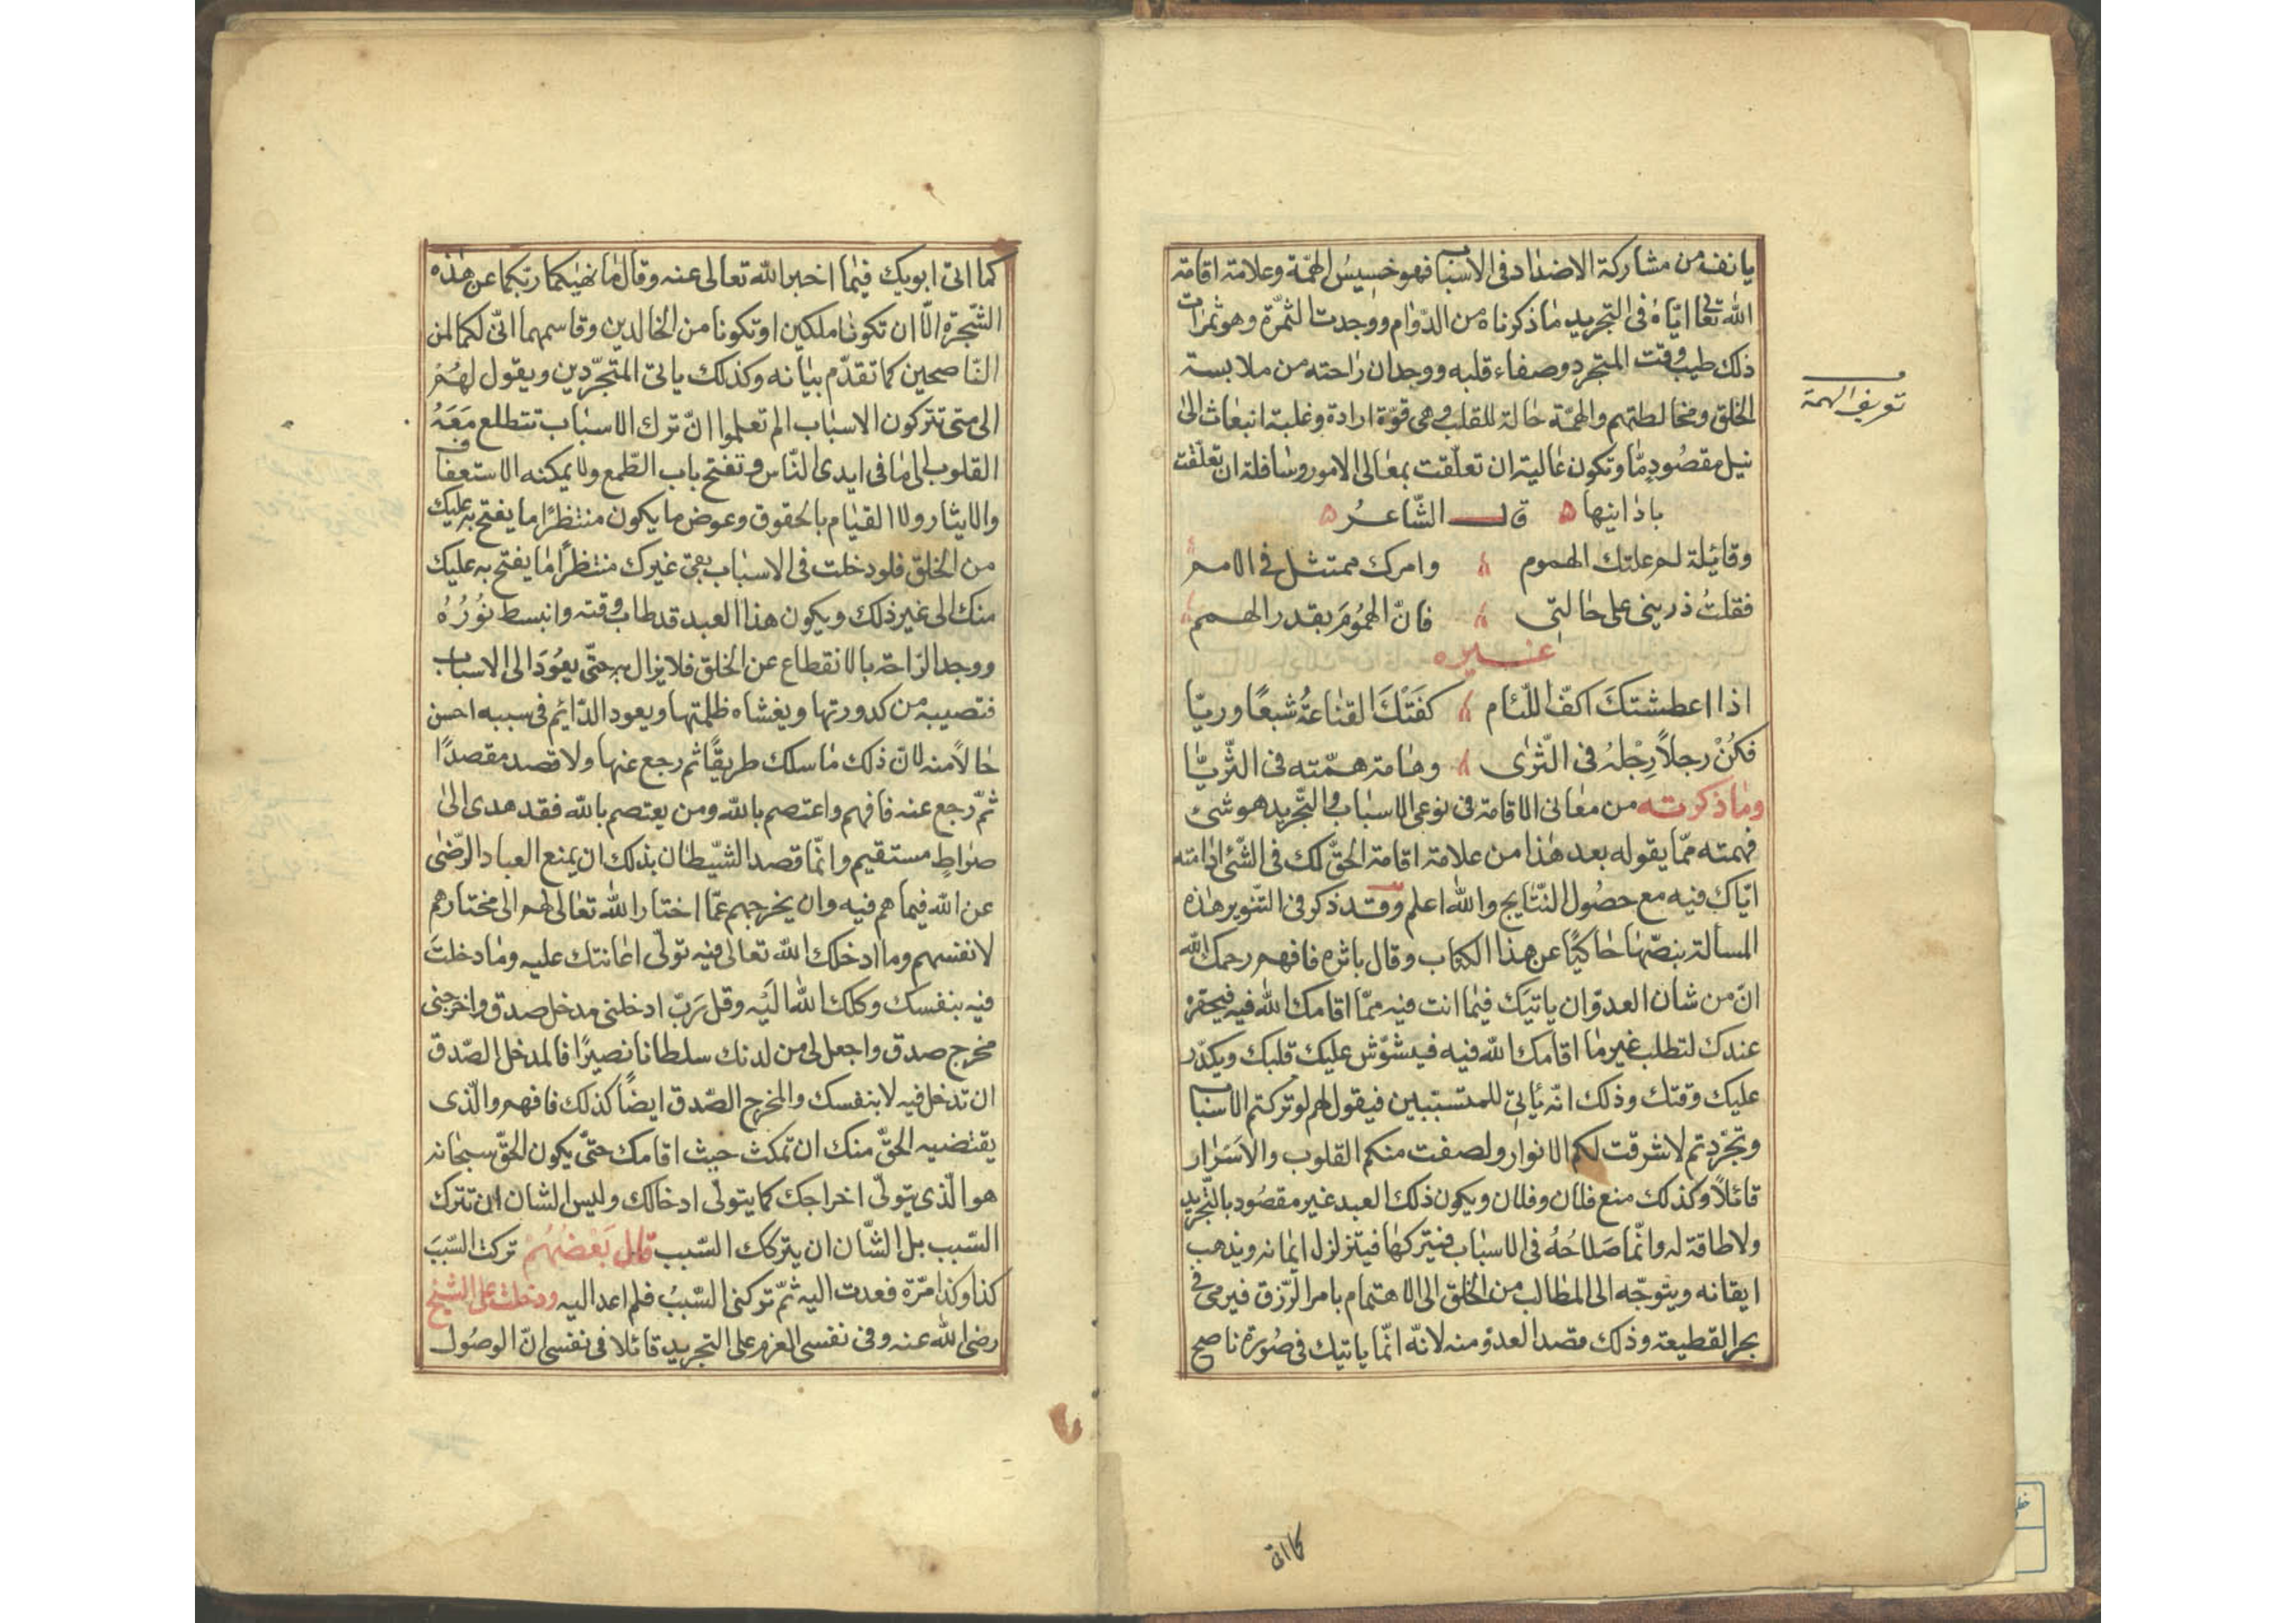 يانف من مشاركة الاضداد فى الاسباب فهو خسيسُ الهمّة وعلامة اقامة
الله تعالى ايّاهُ فى التجريد ما ذكرناه من الدّوام ووجدت الثمرة وهو ثمرات
ذلك طيب وقت المتجرد وصفاء قلبه ووجدان راحته من ملابسة
الخلق ومخالطتهم والهمّة حالة للقلب وهى قوّة ارادة وغلبة انبعاث الى
نيل مقصُودٍ مّا وتكون عالية ان تعلّقت بمعالى الامور وسافلة ان تعلّقت
باذانيها ۵ قال الشّاعرُ ۵
وقائلة لم علتك الهموم وامرك ممتثل فى الامم
فقلتُ ذرينى على حالتى فانّ الهمُومَ بقدر الهمم
غيره
اذا اعطشتكَ اكفّ اللّئام كفَتكَ القناعةُ شبعًا وريّا
فكُنْ رجلاً رِجْلهُ فى الثّرى وهامة همّته فى الثّريّا
وما ذكرته من معانى الاقامة فى نوعى الاسباب والتّجريد هو شئ
فهمته ممّا يقوله بعد هذا من علامة اقامة الحقّ لك فى الشّئ ادامته
ايّاك فيه مع حصُول النّتايج والله اعلم وقد ذكر فى التّنوير هذه
المسألة بنصّها حاكيًا عن هذا الكتاب وقال باثره فافهم رحمك الله
انّ من شان العدوّ ان ياتيَك فيما انت فيه ممّا اقامك الله فيه فيحقره
عندك لتطلب غير ما اقامك الله فيه فيشوّش عليك قلبك ويكدّر
عليك وقتك وذلك انّه يأتى للمتسبّبين فيقول لهم لو تركتم الاسباب
وتجرّدتم لاشرقت لكم الانوار ولصفت منكم القلوب والاسَرار
قائلاً وكذلك منع فلان وفلان ويكون ذلك العبد غير مقصُود بالتّجريد
ولا طاقة له وانّما صَلاحُهُ فى الاسباب فيتركها فيتزلزل ايمانه ويذهب
ايقانه ويتوجّه الى المطالب من الخلق الى الاهتمام بامر الرّزق فيرمى فى
بحر القطيعة وذلك مقصد العدوّ منه لانّه انّما ياتيك فى صُورة ناصح
تعريف الهمة
كما اتى
كما اتى ابويك فيما اخبر الله تعالى عنه وقال ما نهيكما ربّكما عن هذه
الشّجرة الّا ان تكونا ملكين او تكونا من الخالدين وقاسمهما انّى لكما لمن
النّاصحين كما تقدّم بيانه وكذلك ياتى المتجرّدين ويقول لهُم
الى متى تتركون الاسباب الم تعلموا انّ ترك الاسباب تتطلع مَعَهُ
القلوب الى ما فى ايدى النّاس وتفتح باب الطّمع ولا يمكنه الاستعفاف
والايثار ولا القيام بالحقوق وعوض ما يكون منتظرًا ما يفتح به عليك
من الخلق فلو دخلت فى الاسباب بقى غيرك منتظرًا ما يفتح به عليك
منك الى غير ذلك ويكون هذا العبد قد طاب وقته وانبسط نُورُهُ
ووجد الرّاحة بالانقطاع عن الخلق فلا يزال به حتّى يعُودَ الى الاسباب
فتصيبه من كدورتها ويغشاه ظلمتها ويعود الدّائم فى سببه احسن
حالاً منه لانّ ذلك ما سلك طريقًا ثم رجع عنها ولا قصد مقصدًا
ثمّ رجع عنه فافهم واعتصم بالله ومن يعتصم بالله فقد هدى الى
صراطٍ مستقيم وانّما قصد الشّيطان بذلك ان يمنع العباد الرّضى
عن الله فيما هم فيه وان يخرجهم عمّا اختار الله تعالى لهم الى مختارهم
لانفسهم وما ادخلك الله تعالى فيه تولّى اعانتك عليه وما دخلتَ
فيه بنفسك وكلك الله اليه وقل ربّ ادخلنى مدخل صدق واخرجنى
مخرج صدق واجعل لى من لدنك سلطانا نصيرًا فالمدخل الصّدق
ان تدخل فيه لا بنفسك والمخرج الصّدق ايضًا كذلك فافهم والّذى
يقتضيه الحقّ منك ان تمكث حيث اقامك حتّى يكون الحقّ سبحانه
هو الّذى يتولّى اخراجك كما يتولّى ادخالك وليس الشان ان تترك
السّبب بل الشّان ان يتركك السّبب قال بَعْضُهُمْ تركت السّبَبَ
كذا وكذا مرّة فعدت اليه ثمّ تركنى السّببُ فلم اعد اليه ودخلت على الشّيخ
رضى الله عنه وفى نفسى العزم على التجريد قائلا فى نفسى انّ الوصُول